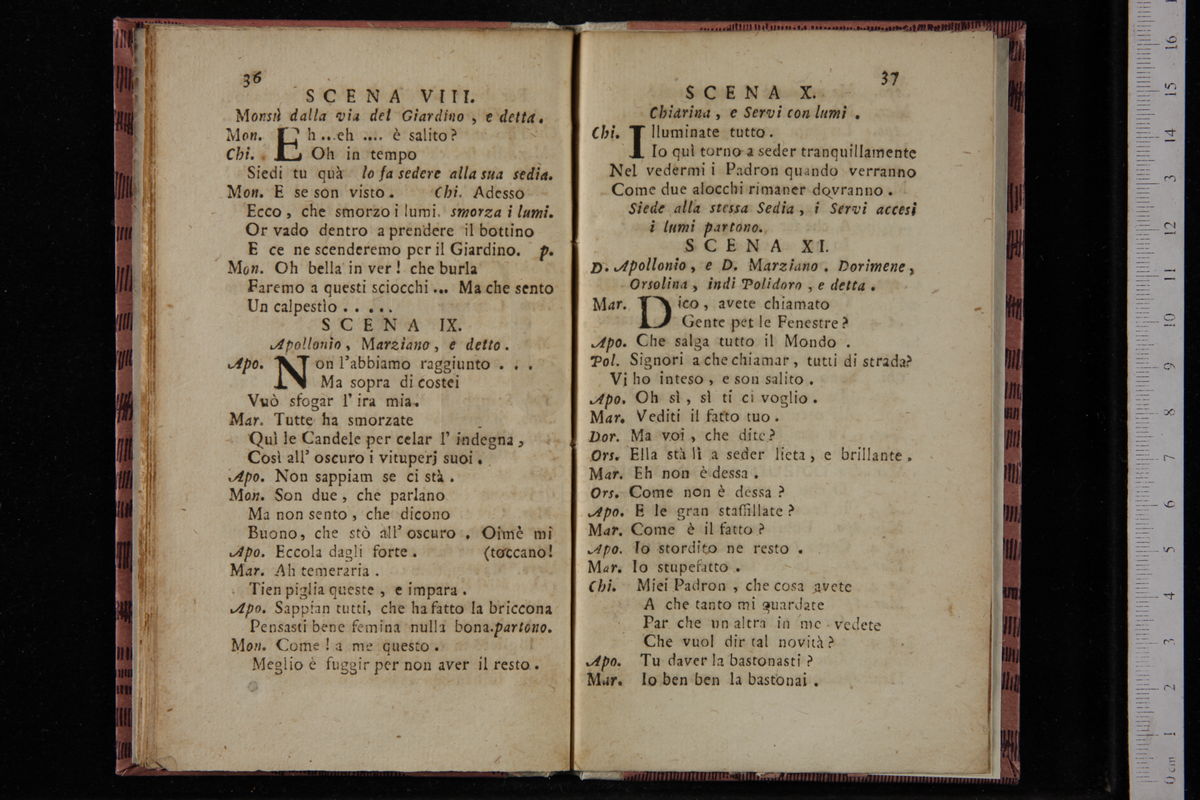 36
SCENA VIII.
Monsù dalla via del Giardino , e detta.
Mon. Eh ... eh .... è salito?
Chi. Oh in tempo
Siedi tu quà lo fa sedere alla sua sedia.
Mon. E se son visto. Chi. Adesso
Ecco, che smorzo i lumi. smorza i lumi.
Or vado dentro a prendere il bottino
E ce ne scenderemo per il Giardino. p.
Mon. Oh bella in ver! che burla
Faremo a questi sciocchi ... Ma che sento
Un calpestìo . . . . .
SCENA IX.
Apollonio, Marziano, e detto.
Apo. Non l'abbiamo raggiunto . . .
Ma sopra di costei
Vuò sfogar l' ira mia.
Mar. Tutte ha smorzate
Quì le Candele per celar l' indegna,
Così all' oscuro i vituperj suoi.
Apo. Non sappiam se ci stà.
Mon. Son due, che parlano
Ma non sento, che dicono
Buono, che stò all' oscuro . Oimè mi
Apo. Eccola dagli forte. (toccano!
Mar. Ah temeraria.
Tien piglia queste, e impara.
Apo. Sappian tutti, che ha fatto la briccona
Pensasti bene femina nulla bona. partono.
Mon. Come! a me questo.
Meglio è fuggir per non aver il resto.
37
SCENA X.
Chiarina, e Servi con lumi.
Chi. Illuminate tutto.
Io quì torno a seder tranquillamente
Nel vedermi i Padron quando verranno
Come due alocchi rimaner dovranno.
Siede alla stessa Sedia, i Servi accesi
i lumi partono.
SCENA XI.
D. Apollonio, e D. Marziano. Dorimene,
Orsolina, indi Polidoro, e detta.
Mar. Dico, avete chiamato
Gente pet le Fenestre?
Apo. Che salga tutto il Mondo.
Pol. Signori a che chiamar, tutti di strada?
Vi ho inteso, e son salito.
Apo. Oh sì, sì ti ci voglio.
Mar. Vediti il fatto tuo.
Dor. Ma voi, che dite?
Ors. Ella stà lì a seder lieta, e brillante.
Mar. Eh non è dessa.
Ors. Come non è dessa?
Apo. E le gran staffillate?
Mar. Come è il fatto?
Apo. Io stordito ne resto.
Mar. Io stupefatto.
Chi. Miei Padron, che cosa avete
A che tanto mi guardate
Par che un altra in me vedete
Che vuol dir tal novità?
Apo. Tu daver la bastonasti?
Mar. Io ben ben la bastonai.
0 cm 1 2 3 4 5 6 7 8 9 10 11 12 13 14 15 16